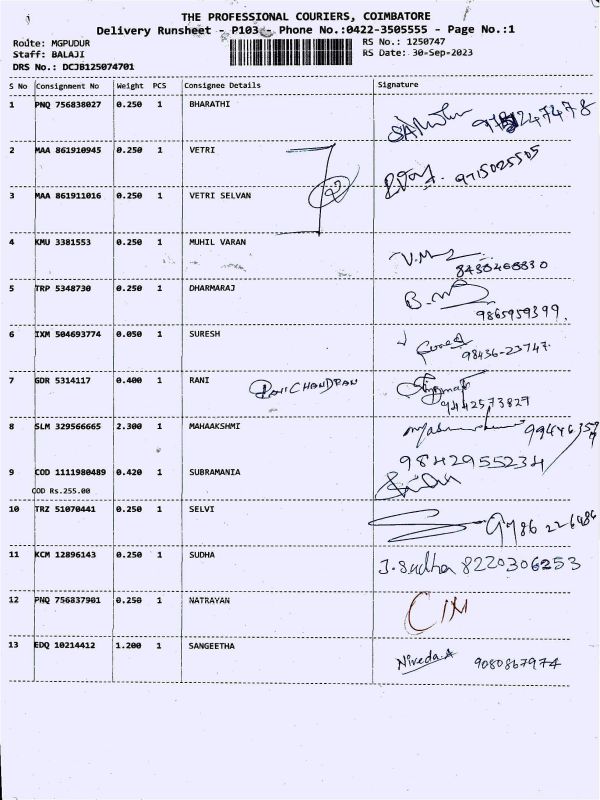 THE PROFESSIONAL COURIERS, COIMBATORE
Delivery Runsheet - P103 - Phone No.:0422-3505555 - Page No.:1
Route: MGPUDUR
RS No.: 1250747
Staff: BALAJI
RS Date: 30-Sep-2023
DRS No.: DCJB125074701
S No Consignment No Weight PCS Consignee Details Signature
1 PNQ 756838027 0.250 1 BHARATHI
2 MAA 861910945 0.250 1 VETRI 9715025505
3 MAA 861911016 0.250 1 VETRI SELVAN
4 KMU 3381553 0.250 1 MUHIL VARAN
5 TRP 5348730 0.250 1 DHARMARAJ
9865959399.
6 IXM 504693774 0.050 1 SURESH
98436-23747
7 GDR 5314117 0.400 1 RANI
9442573827
8 SLM 329566665 2.300 1 MAHAAKSHMI
9842955234
9 COD 1111980489 0.420 1 SUBRAMANIA
COD Rs.255.00
10 TRZ 51070441 0.250 1 SELVI
11 KCM 12896143 0.250 1 SUDHA J.Sudha 8220306253
12 PNQ 756837901 0.250 1 NATRAYAN
13 EDQ 10214412 1.200 1 SANGEETHA
Niveda.A 9080867974